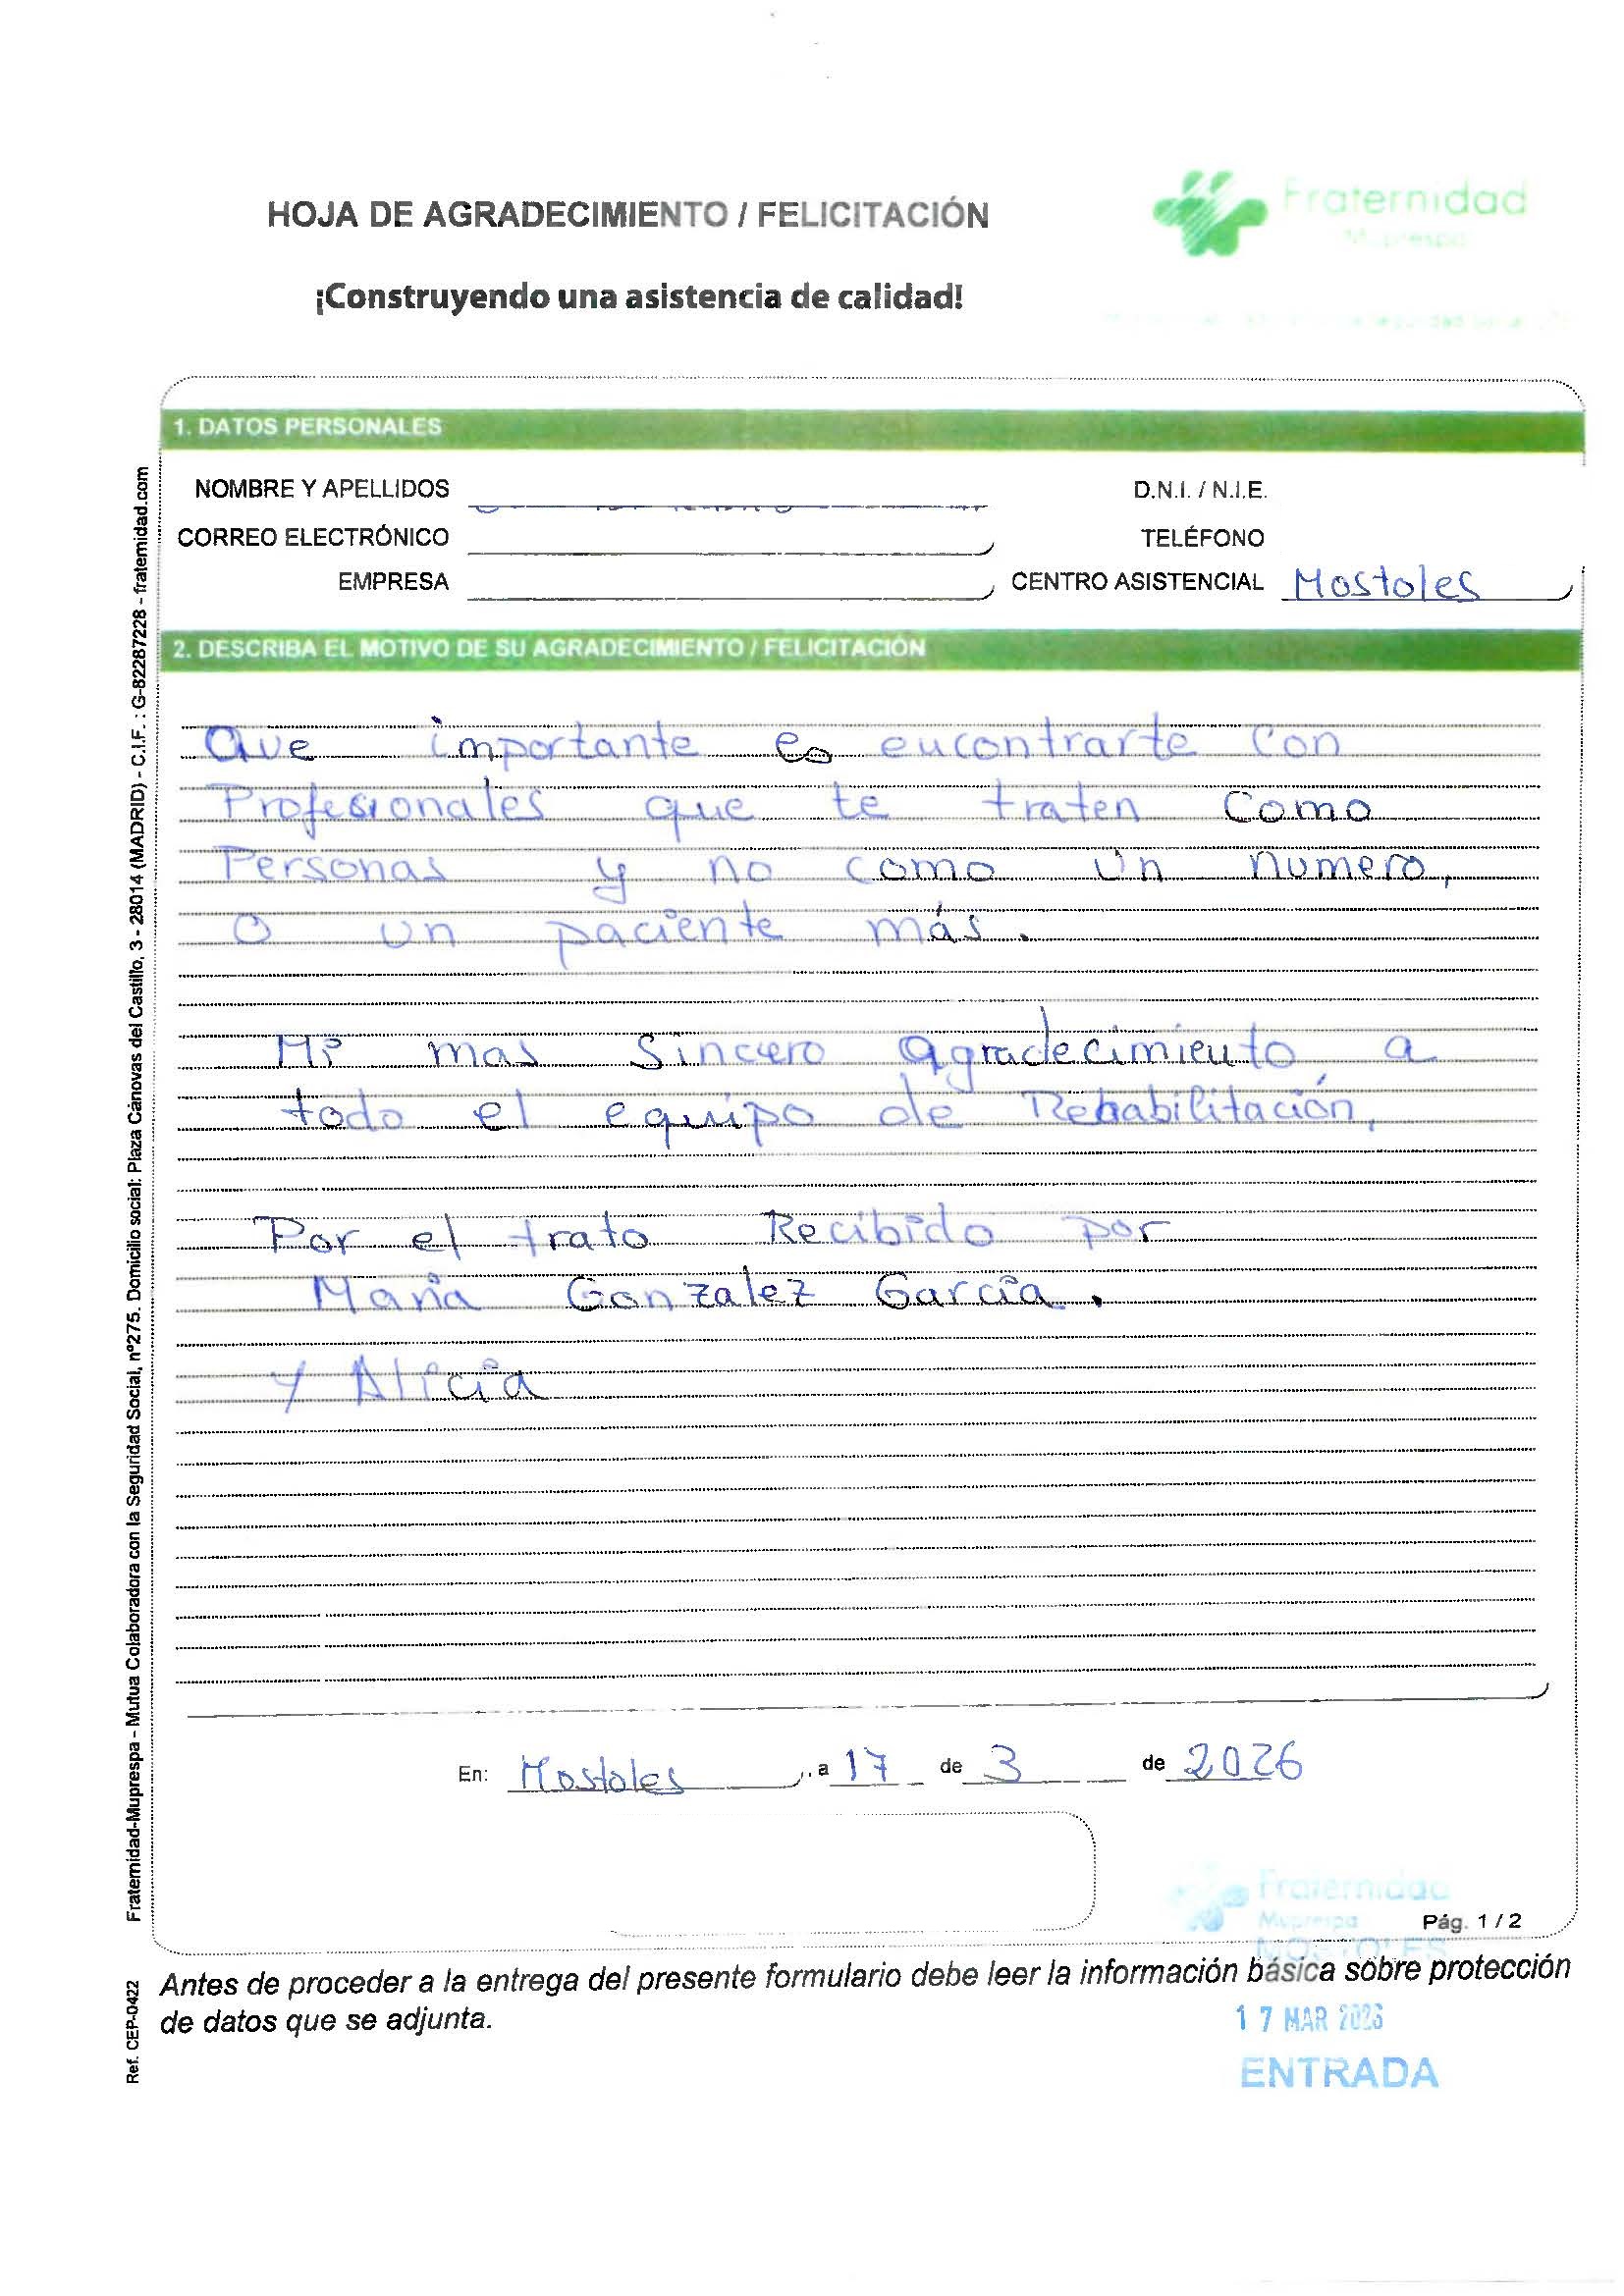 HOJA DE AGRADECIMIENTO / FELICITACIÓN
Fraternidad
Muprespa
¡Construyendo una asistencia de calidad!
1. DATOS PERSONALES
NOMBRE Y APELLIDOS
D.N.I. / N.I.E.
CORREO ELECTRÓNICO
TELÉFONO
EMPRESA
CENTRO ASISTENCIAL Mostoles
2. DESCRIBA EL MOTIVO DE SU AGRADECIMIENTO / FELICITACIÓN
Que importante es encontrarte con
Profesionales que te traten como
Personas y no como un numero,
o un paciente más.
Mi mas sincero agradecimiento a
todo el equipo de Rehabilitación,
Por el trato Recibido por
María Gonzalez García.
Y Alicia
En: Mostoles, a 17 de 3 de 2026
Fraternidad
Muprespa
MOSTOLES
Pág. 1 / 2
Antes de proceder a la entrega del presente formulario debe leer la información básica sobre protección
de datos que se adjunta.
17 MAR 2026
ENTRADA
Fraternidad-Muprespa - Mutua Colaboradora con la Seguridad Social, nº275. Domicilio social: Plaza Cánovas del Castillo, 3 - 28014 (MADRID) - C.I.F. : G-82287228 - fraternidad.com
Ref. CEP-0422